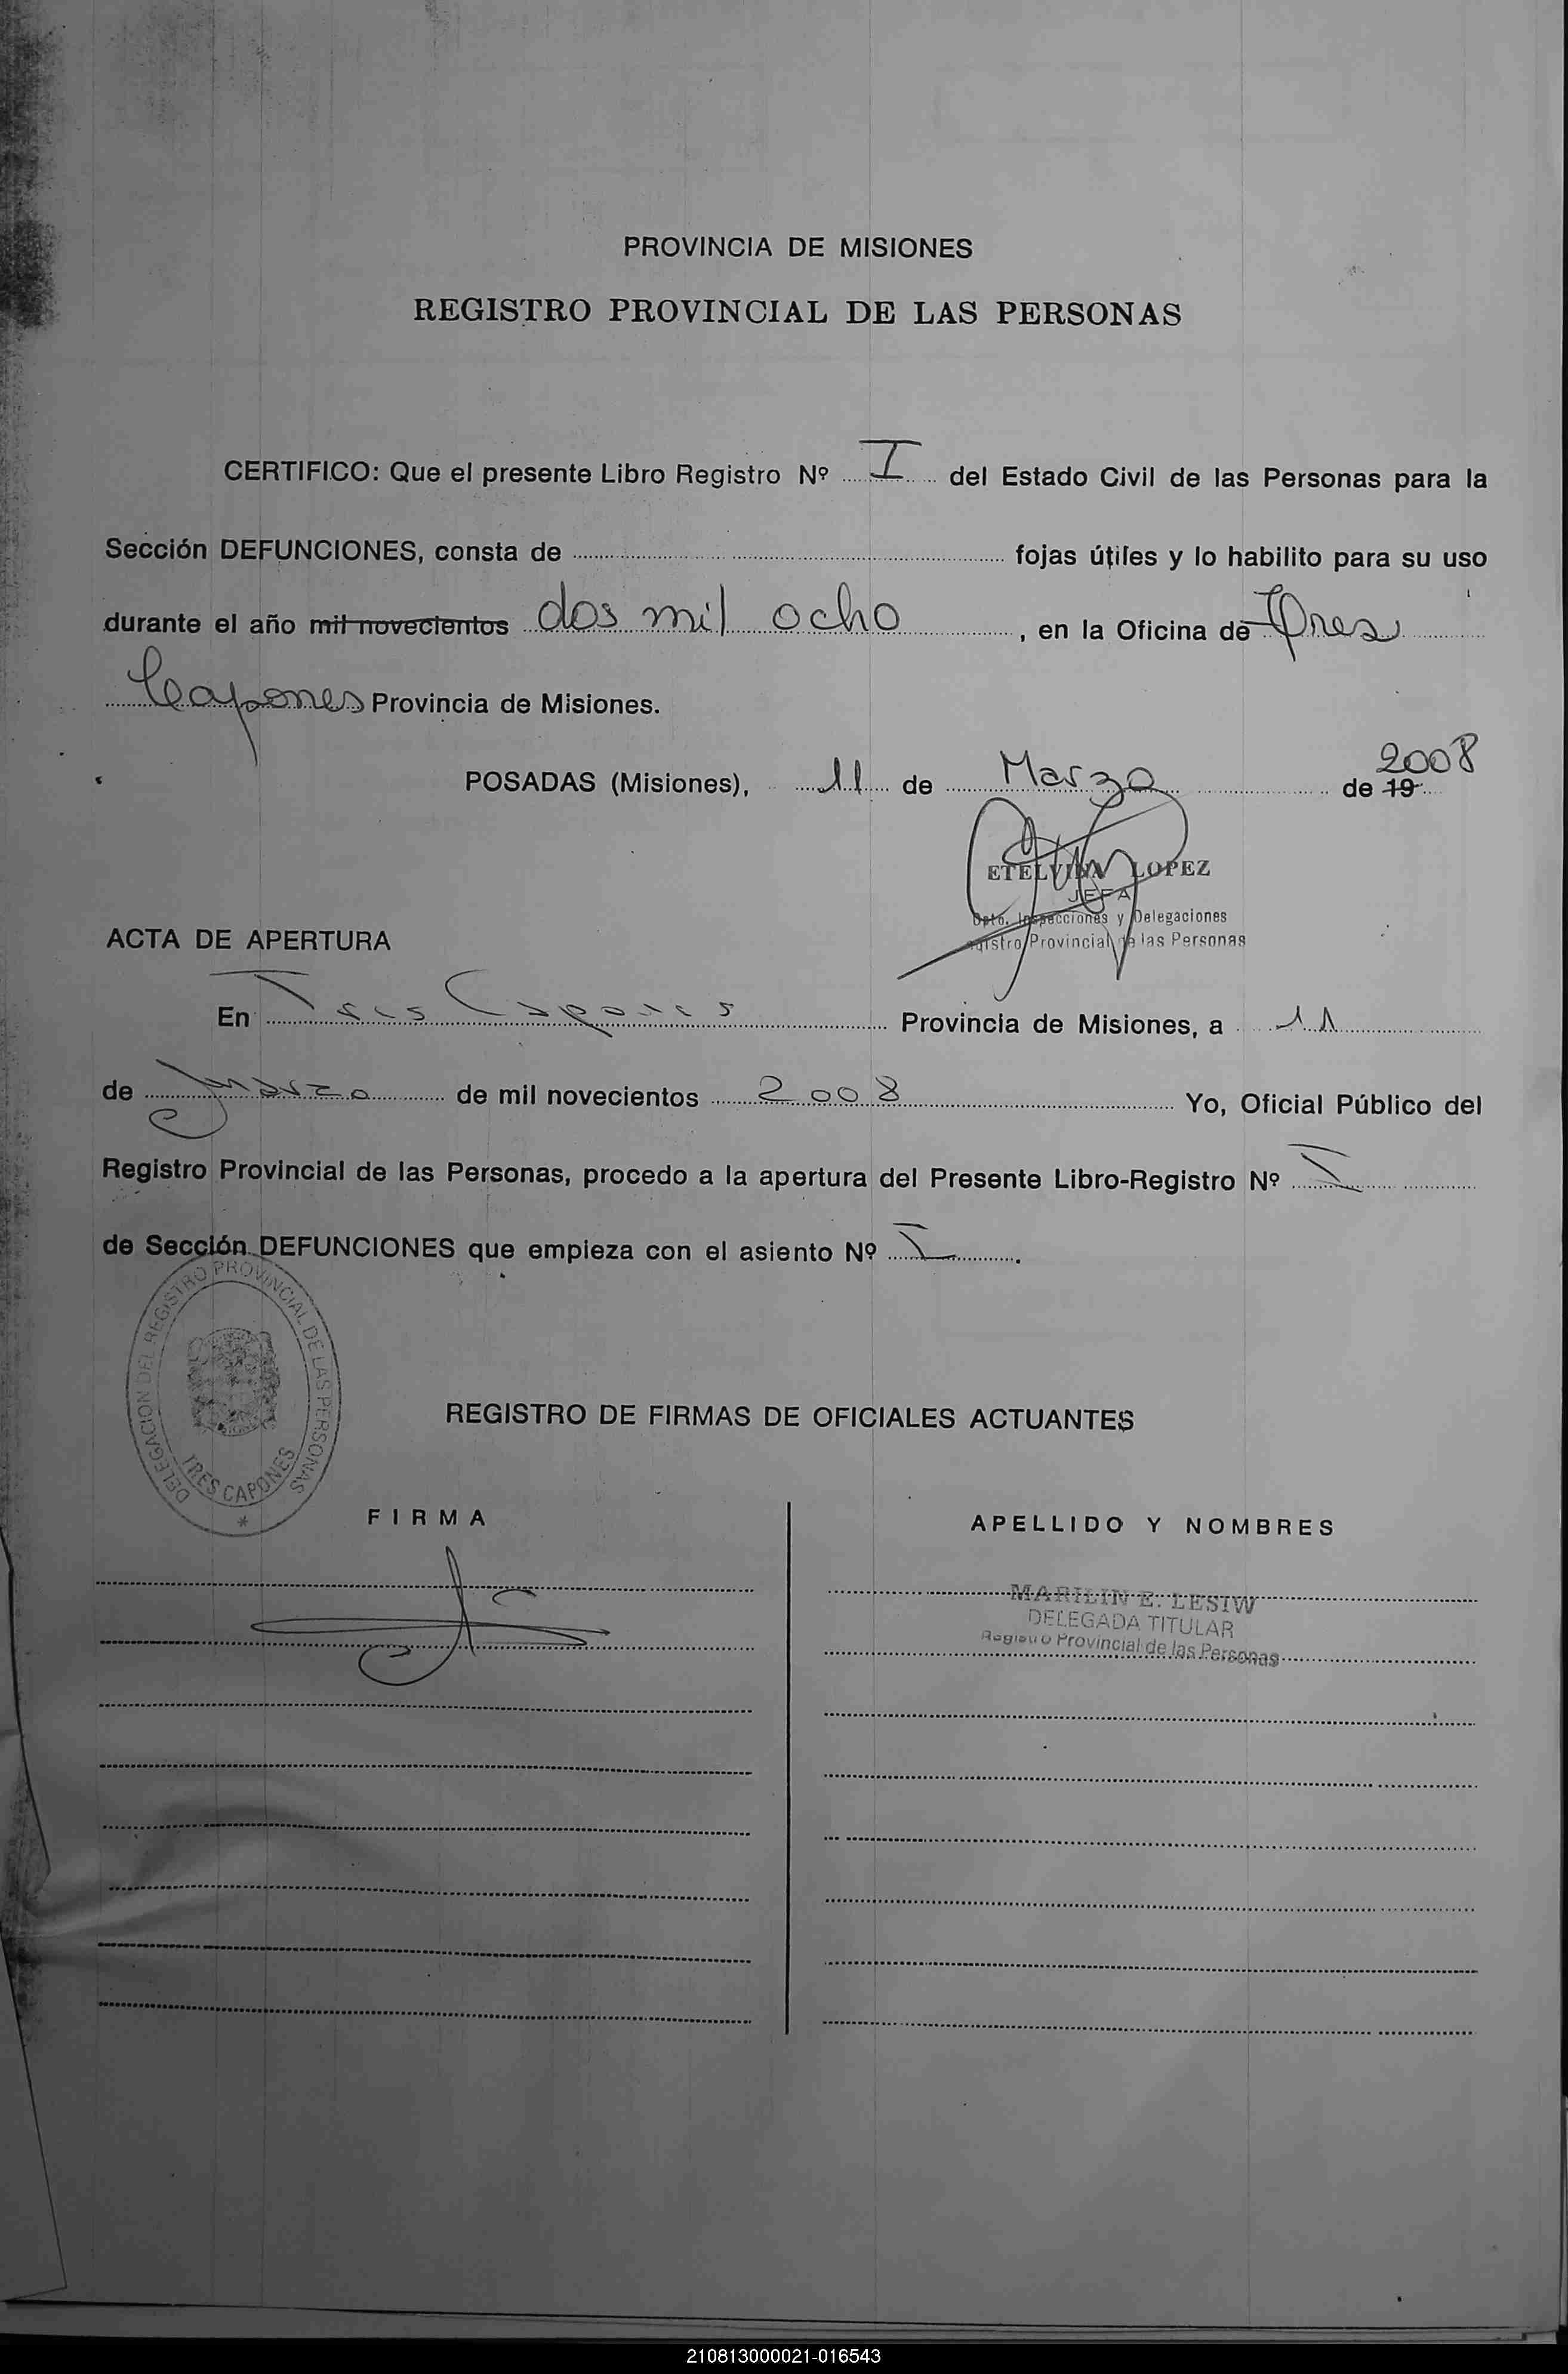 PROVINCIA DE MISIONES
REGISTRO PROVINCIAL DE LAS PERSONAS
CERTIFICO: Que el presente Libro Registro Nº I del Estado Civil de las Personas para la
Sección DEFUNCIONES, consta de fojas útiles y lo habilito para su uso
durante el año mil novecientos dos mil ocho, en la Oficina de Tres
Capones Provincia de Misiones.
POSADAS (Misiones), 11 de Marzo de 19 2008
ETELVINA LOPEZ
JEFA
Dpto. Inspecciones y Delegaciones
Registro Provincial de las Personas
ACTA DE APERTURA
En Tres Capones Provincia de Misiones, a 11
de marzo de mil novecientos 2008 Yo, Oficial Público del
Registro Provincial de las Personas, procedo a la apertura del Presente Libro-Registro Nº I
de Sección DEFUNCIONES que empieza con el asiento Nº I.
DELEGACION DEL REGISTRO PROVINCIAL DE LAS PERSONAS
TRES CAPONES
REGISTRO DE FIRMAS DE OFICIALES ACTUANTES
FIRMA
APELLIDO Y NOMBRES
MARILIN E. LESIW
DELEGADA TITULAR
Registro Provincial de las Personas
210813000021-016543